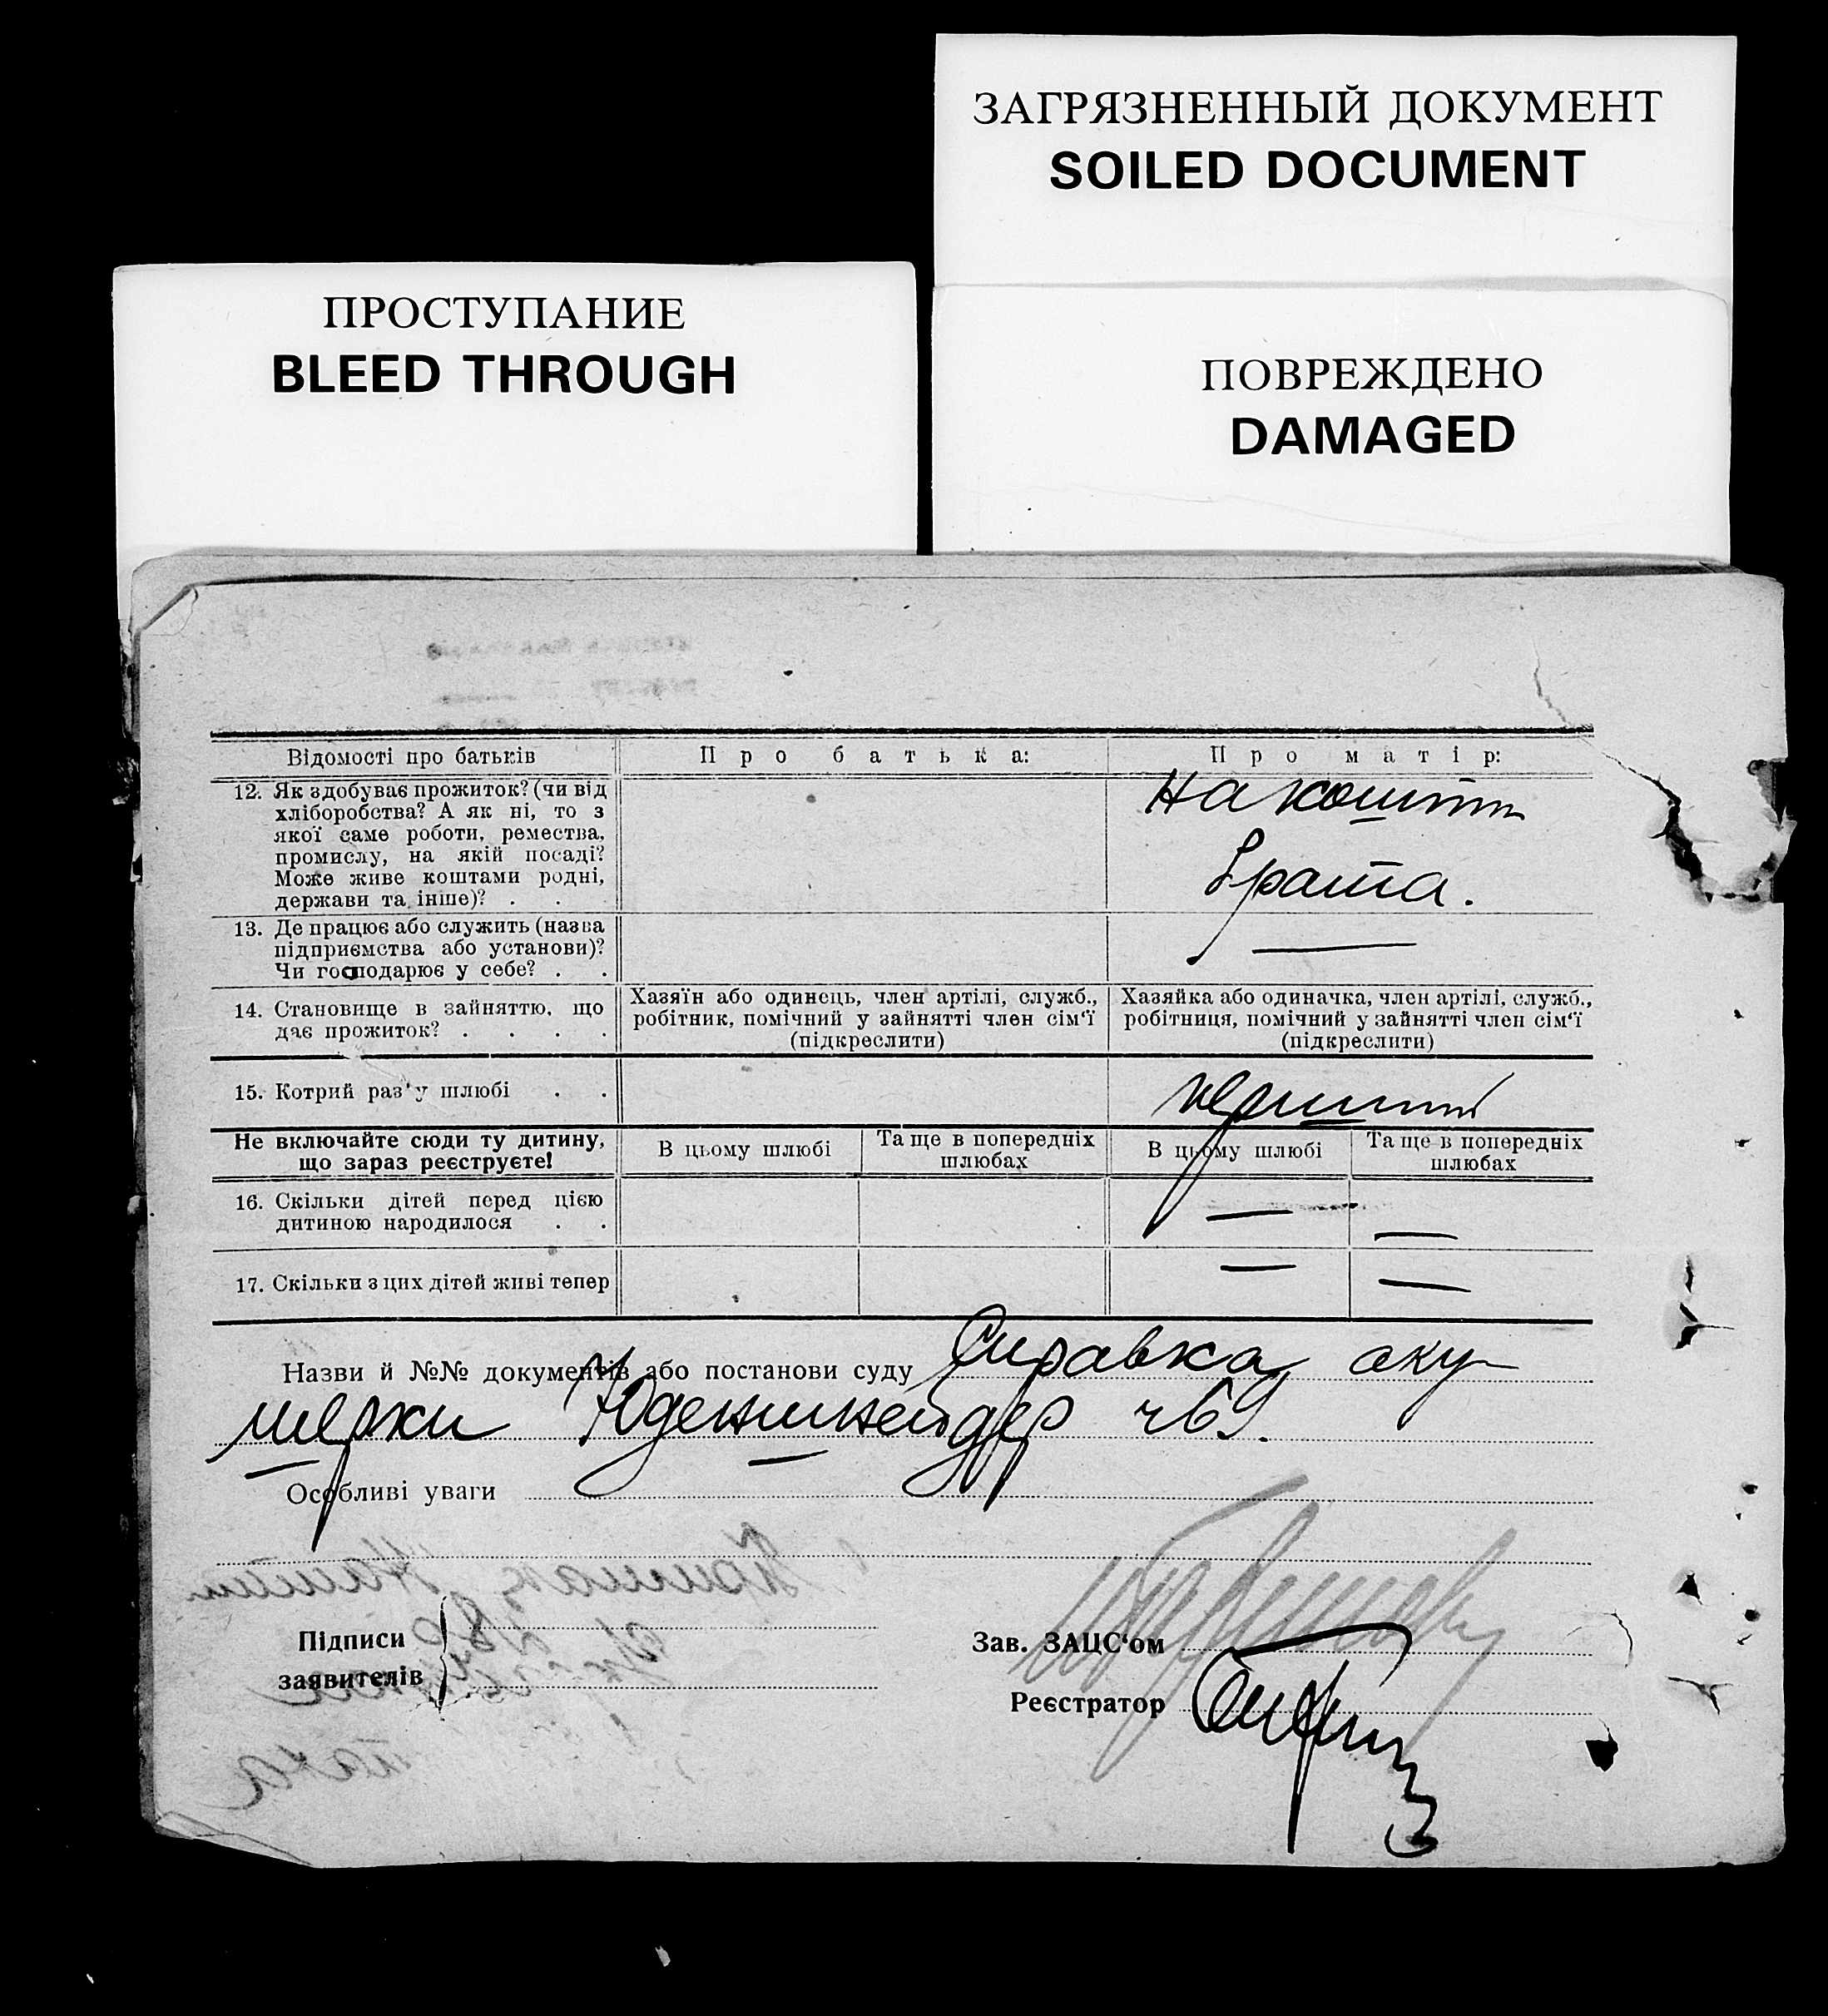 ЗАГРЯЗНЕННЫЙ ДОКУМЕНТ
SOILED DOCUMENT
ПРОСТУПАНИЕ
BLEED THROUGH
ПОВРЕЖДЕНО
DAMAGED
Відомості про батьків
Про батька:
Про матір:
12. Як здобуває прожиток? (чи від
хліборобства? А як ні, то з
якої саме роботи, ремества,
промислу, на якій посаді?
Може живе коштами родні,
держави та інше)? . .
На кошти
брата.
13. Де працює або служить (назва
підприємства або установи)?
Чи господарює у себе? . .
—
14. Становище в зайняттю, що
дає прожиток? . . . .
Хазяїн або одинець, член артілі, служб.,
робітник, помічний у зайнятті член сім'ї
(підкреслити)
Хазяйка або одиначка, член артілі, служб.,
робітниця, помічний у зайнятті член сім'ї
(підкреслити)
15. Котрий раз у шлюбі . .
Не включайте сюди ту дитину,
що зараз реєструєте!
В цьому шлюбі
Та ще в попередніх
шлюбах
В цьому шлюбі
Та ще в попередніх
шлюбах
16. Скільки дітей перед цією
дитиною народилося . .
— —
17. Скільки з цих дітей живі тепер
— —
Назви й №№ документів або постанови суду Справка аку-
шерки
Особливі уваги
Підписи
заявителів
Зав. ЗАЦС'ом
Реєстратор